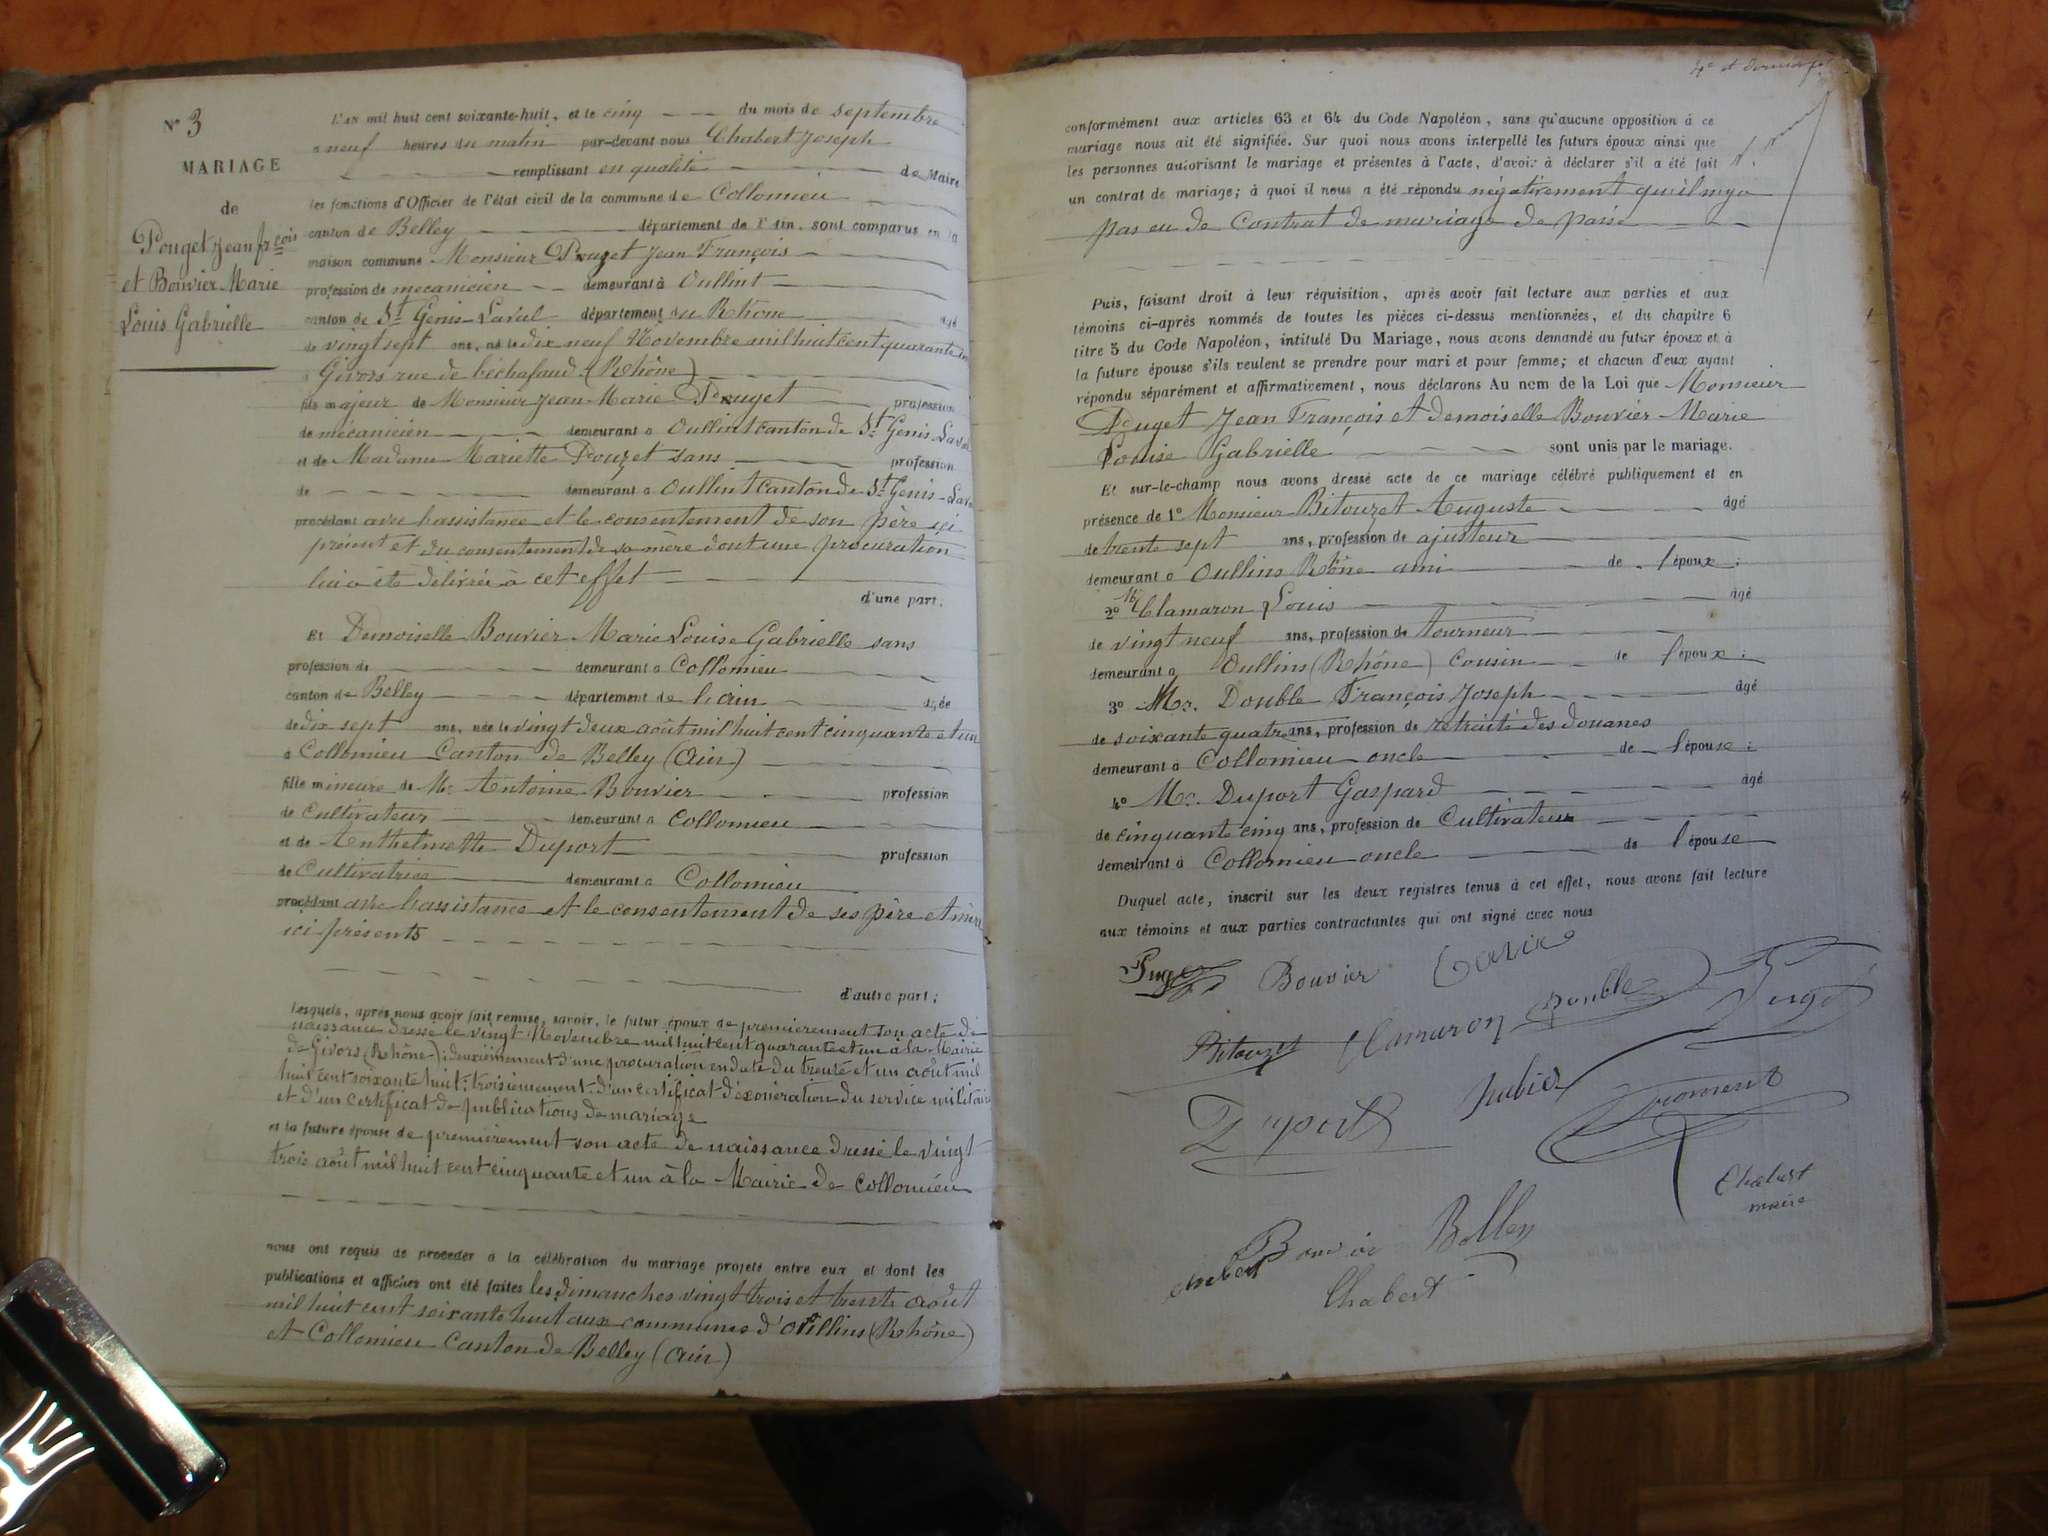 N° 3
MARIAGE
de
Pouget Jean frçois
et Bouvier Marie
Louis Gabrielle
L'AN mil huit cent soixante-huit, et le cinq du mois de septembre
à neuf heures du matin par-devant nous Chabert Joseph
remplissant en qualité de Maire
les fonctions d'Officier de l'état civil de la commune de Collomieu
canton de Belley département de l'Ain, sont comparus en la
maison commune Monsieur Pouget Jean François
profession de mecanicien demeurant à Oullint
canton de St Genis-Laval département du Rhône agé
de vingt sept ans, né le dix neuf Novembre mil huit cent quarante un
à Givors rue de l'échafaud (Rhône)
fils majeur de Monsieur Jean Marie Pouget profession
de mécanicien demeurant à Oullint canton de St Genis Laval
et de Madame Mariette Pouzet sans profession
de demeurant à Oullint Canton de St Genis-Laval
procédant avec l'assistance et le consentement de son père ici
présent et du consentement de sa mère dont une procuration
lui a été délivrée à cet effet
d'une part;
Et Demoiselle Bouvier Marie Louise Gabrielle sans
profession de demeurant à Collomieu
canton de Belley département de l'ain agée
de dix sept ans, née le vingt deux août mil huit cent cinquante et un
à Collomieu Canton de Belley (Ain)
fille mineure de Mr Antoine Bouvier profession
de Cultivateur demeurant à Collomieu
et de Anthelmette Duport profession
de Cultivatrice demeurant à Collomieu
procédant avec l'assistance et le consentement de ses père et mère
ici présents
d'autre part;
Lesquels, après nous avoir fait remise, savoir, le futur époux de premièrement son acte de
naissance dressé le vingt Novembre mil huit cent quarante et un à la Mairie
de Givors (Rhône); deuxièmement d'une procuration en date du trente et un août mil
huit cent soixante huit; troisiemement d'un certificat d'éxonération du service militaire
et d'un certificat de publications de mariage
et la future épouse de premièrement son acte de naissance dressé le vingt
trois août mil huit cent cinquante et un à la Mairie de Collomieu
nous ont requis de procéder à la célébration du mariage projeté entre eux et dont les
publications et affiches ont été faites les dimanches vingt trois et trente août
mil huit cent soixante huit aux communes d'Oullins (Rhône)
et Collomieu Canton de Belley (Ain)
4e et dernier
conformément aux articles 63 et 64 du Code Napoléon, sans qu'aucune opposition à ce
mariage nous ait été signifiée. Sur quoi nous avons interpellé les futurs époux ainsi que
les personnes autorisant le mariage et présentes à l'acte, d'avoir à déclarer s'il a été fait
un contrat de mariage; à quoi il nous a été répondu négativement qu'il n'y a
pas eu de Contrat de mariage de passé
Puis, faisant droit à leur réquisition, après avoir fait lecture aux parties et aux
témoins ci-après nommés de toutes les pièces ci-dessus mentionnées, et du chapitre 6
titre 5 du Code Napoléon, intitulé Du Mariage, nous avons demandé au futur époux et à
la future épouse s'ils veulent se prendre pour mari et pour femme; et chacun d'eux ayant
répondu séparément et affirmativement, nous déclarons Au nom de la Loi que Monsieur
Pouget Jean François et demoiselle Bouvier Marie
Louise Gabrielle sont unis par le mariage.
Et sur-le-champ nous avons dressé acte de ce mariage célébré publiquement et en
présence de 1° Monsieur Bitouzet Auguste âgé
de trente sept ans, profession de ajusteur
demeurant à Oullins Rhône ami de l'époux;
2° Mr Clamaron Louis âgé
de vingt neuf ans, profession de tourneur
demeurant à Oullins (Rhône) cousin de l'époux;
3° Mr. Double François Joseph âgé
de soixante quatre ans, profession de retraité des douanes
demeurant à Collomieu oncle de l'épouse;
4° Mr. Duport Gaspard âgé
de cinquante cinq ans, profession de Cultivateur
demeurant à Collomieu oncle de l'épouse
Duquel acte, inscrit sur les deux registres tenus à cet effet, nous avons fait lecture
aux témoins et aux parties contractantes qui ont signé avec nous
Bouvier
Bitouzet Clamaron Double
Duport
Chabert
maire
Bouvier
Chabert